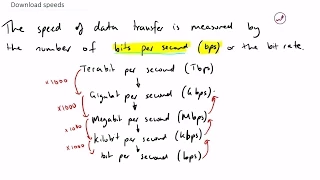 Download speeds
The speed of data transfer is measured by
the number of bits per second (bps) or the bit rate.
Terabit per second (Tbps)
x1000
Gigabit per second (Gbps).
x1000
Megabit per second (Mbps)
x1000
Kilobit per second (Kbps)
x1000
bit per second (bps)